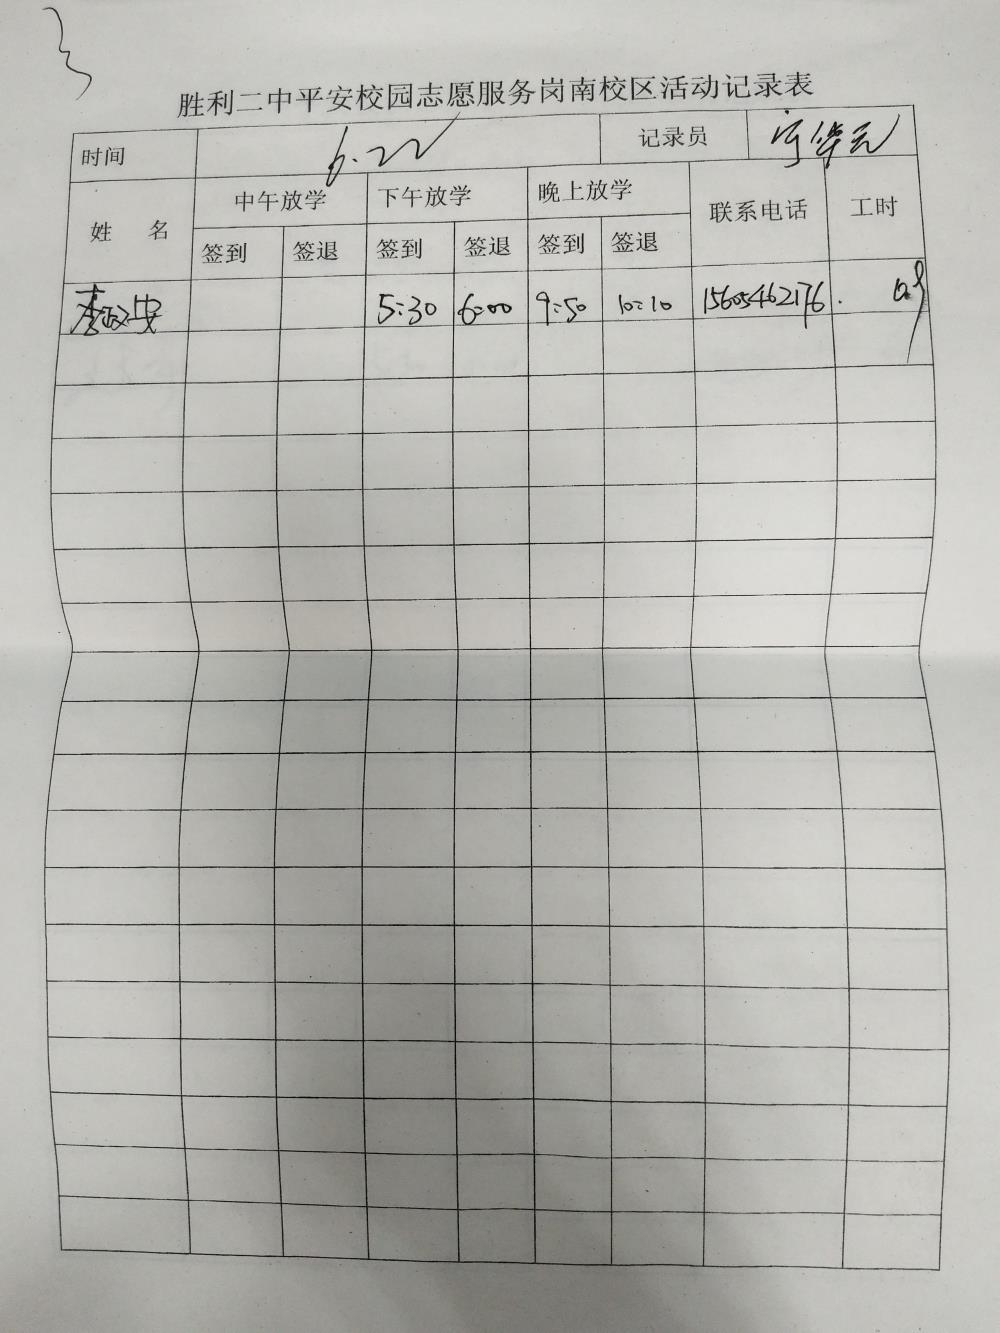 胜利二中平安校园志愿服务岗南校区活动记录表
时间 6.22 记录员
姓 名 中午放学 下午放学 晚上放学 联系电话 工时
签到 签退 签到 签退 签到 签退
5:30 6:00 9:50 10:10 15605462176